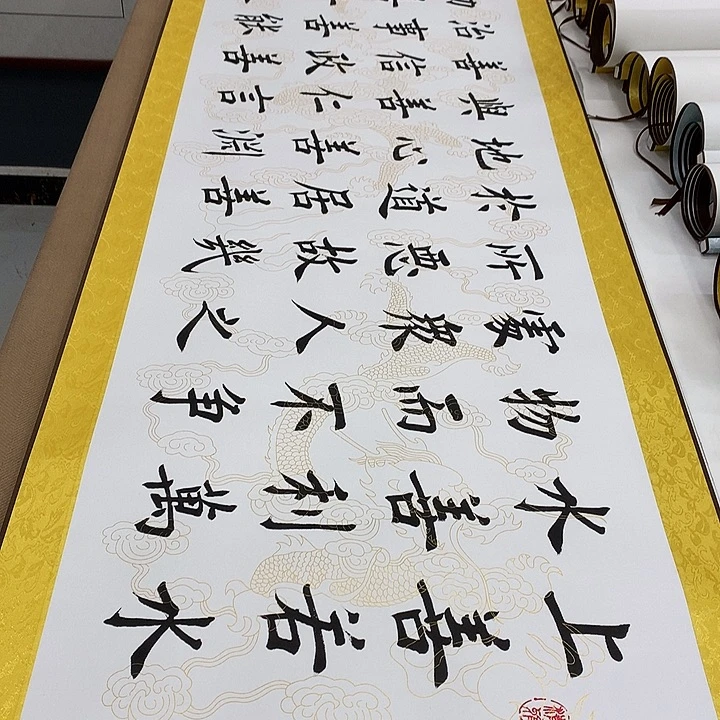 上善若水
水善利萬
物而不争
處衆人之
所惡故幾
於道居善
地心善淵
與善仁言
善信政善
治事善能